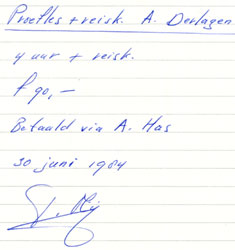 Proefles + reisk. A. Derlagen
4 uur + reisk.
f 90,-
Betaald via A. Has
30 juni 1984